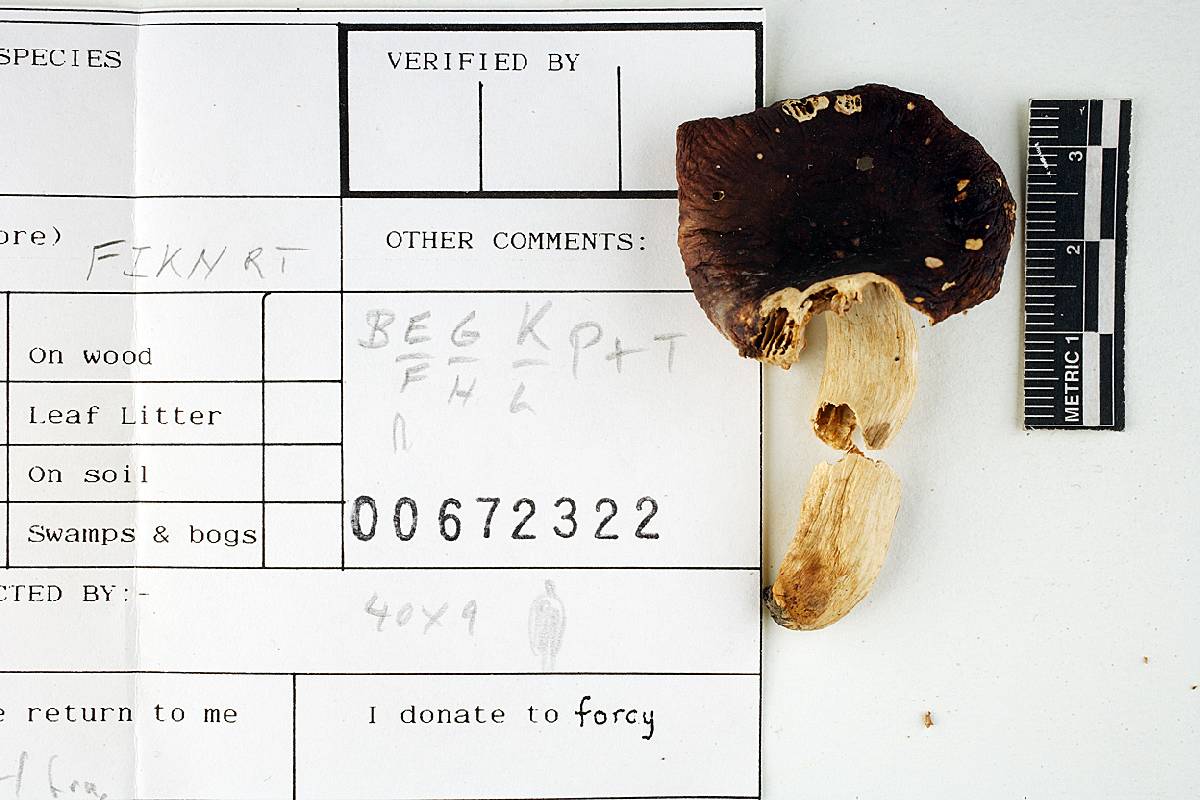 SPECIES
VERIFIED BY
ore) FIKN RT
OTHER COMMENTS:
B E G K P + T
F H L
On wood
Leaf Litter
On soil
Swamps & bogs
00672322
CTED BY:-
40 X 9
e return to me
I donate to forcy
3
2
METRIC 1